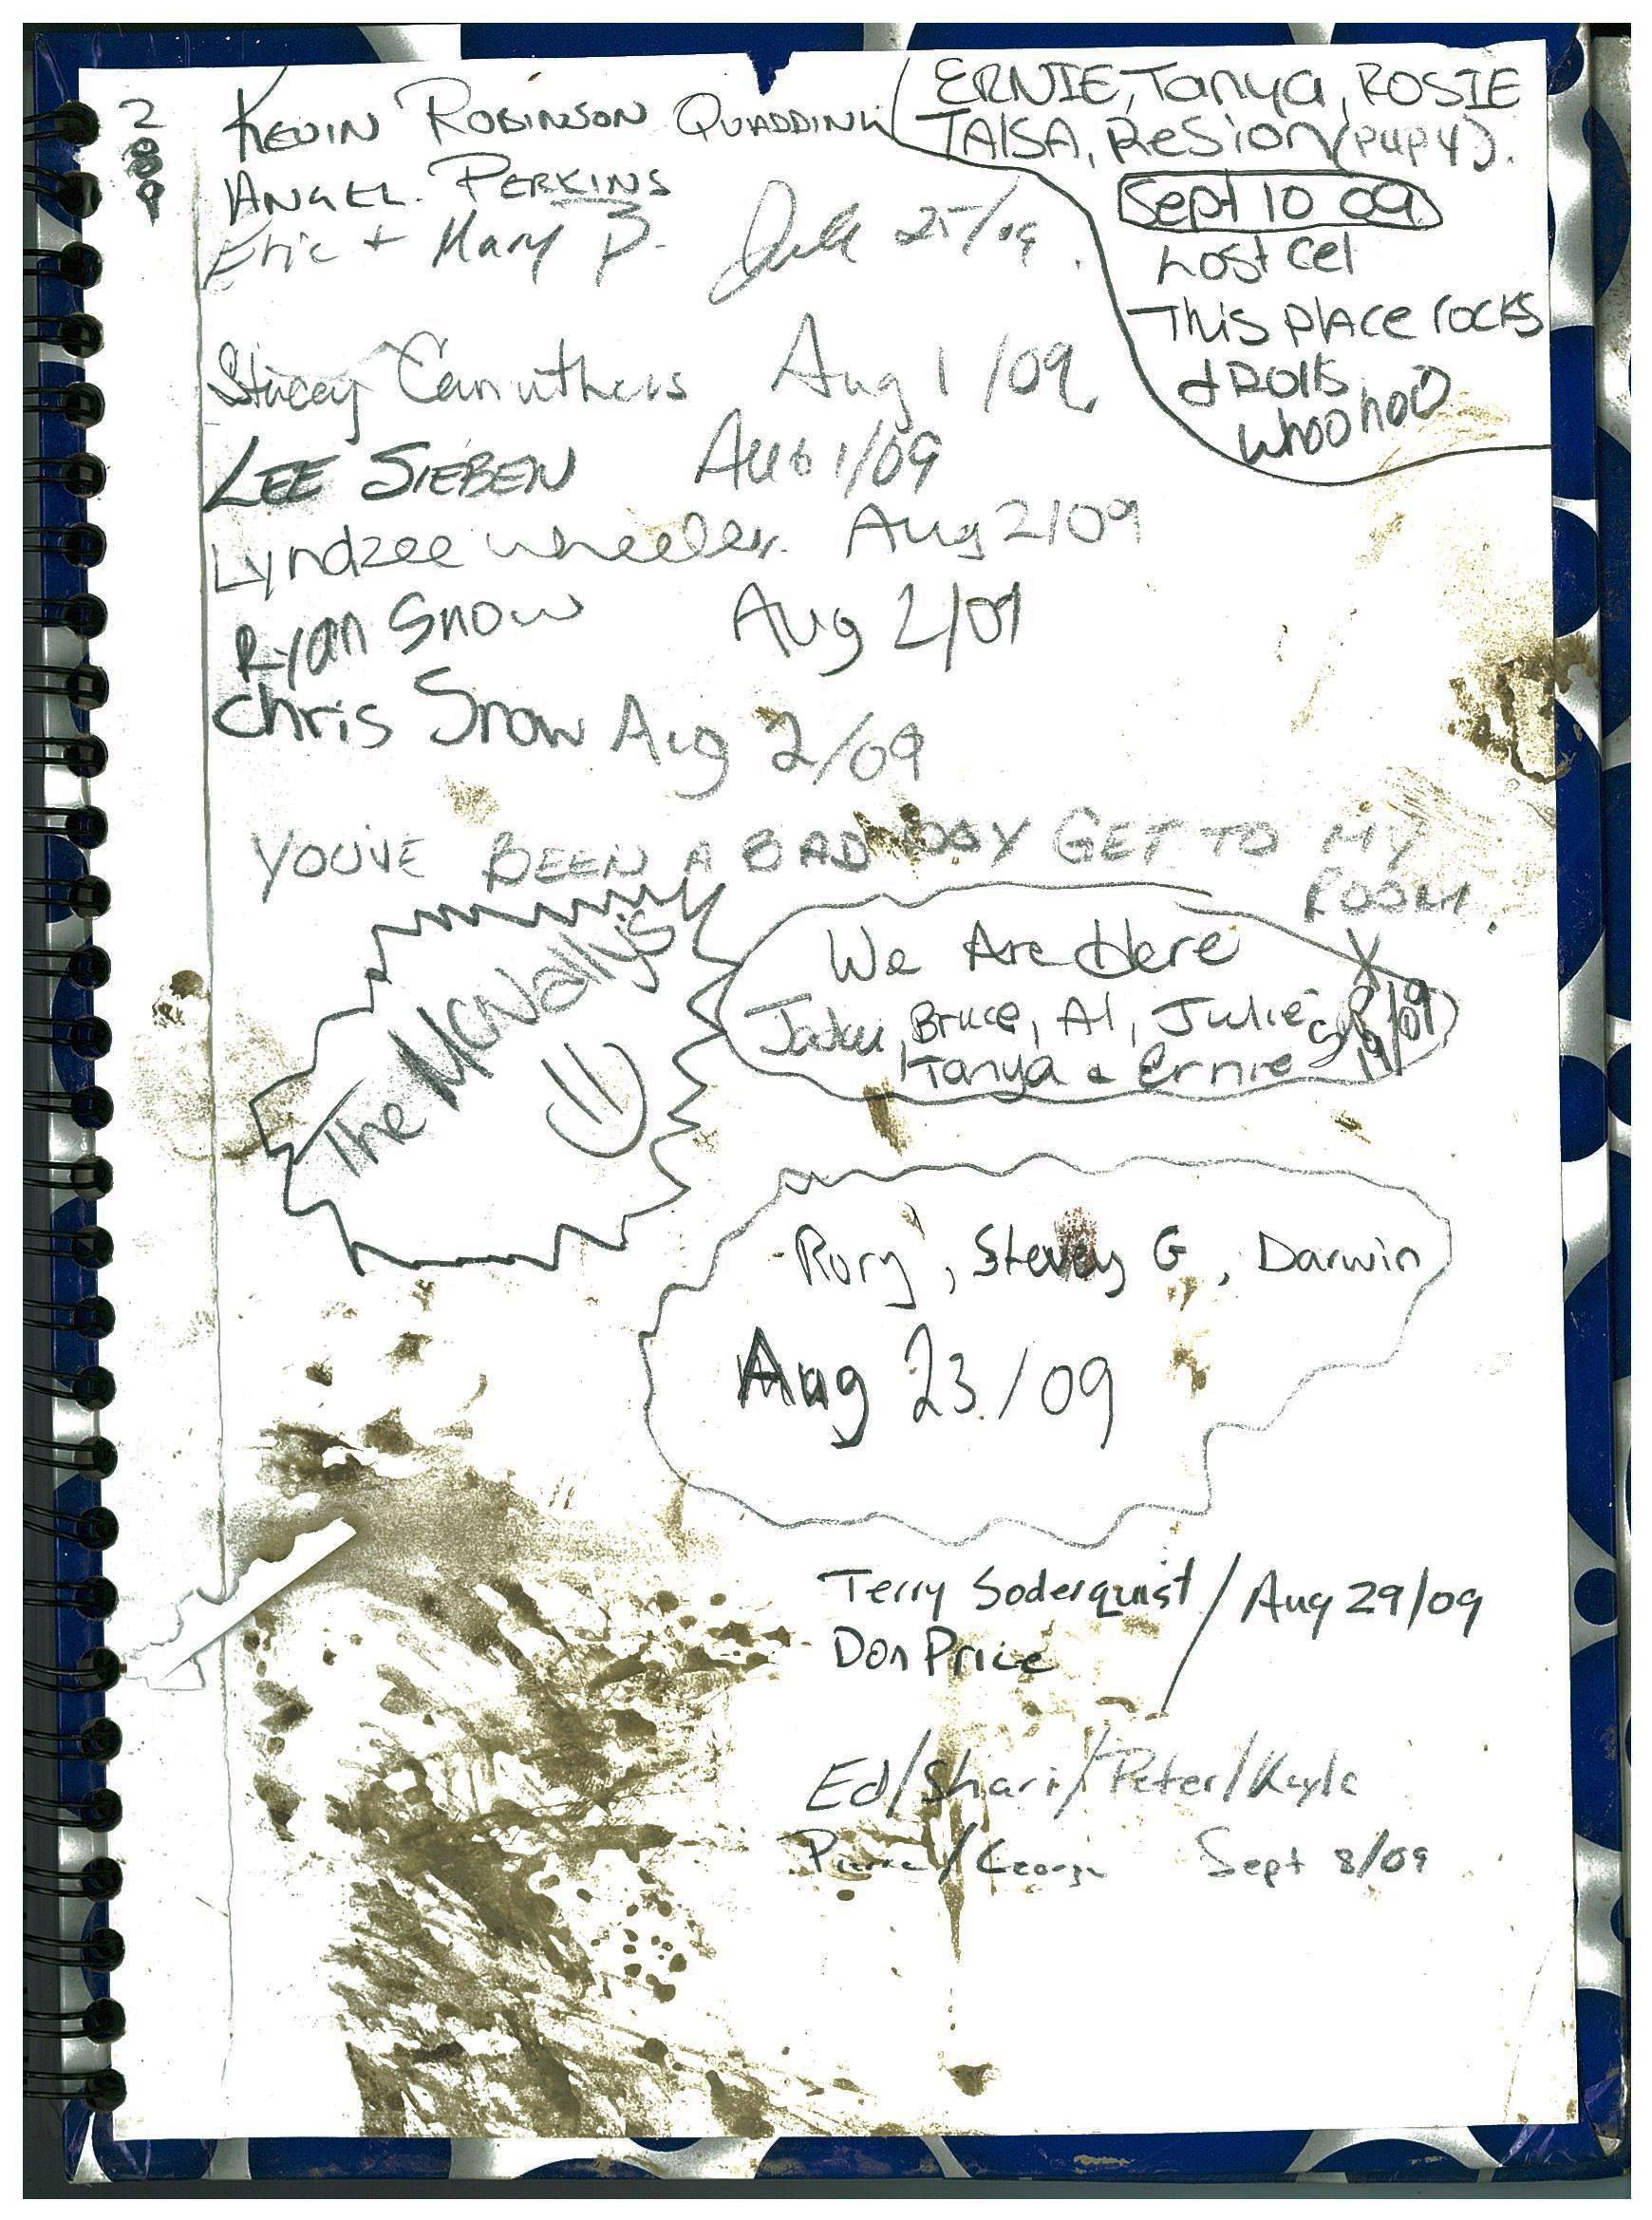 2009
KEVIN ROBINSON QUADDING
ANGEL PERKINS
Eric + Mary P. 25/09.
ERNIE, Tanya, ROSIE
TAISA, ReSion (pupy).
Sept 10 09
Lost Cel
This plAce rocks
& Rolls
whoohoo
Stacey Carruthers Aug 1/09
LEE SIEBEN AUG 1/09
Lyndzee wheeler. Aug 2/09
Ryan Snow Aug 2/09
Chris Snow Aug 2/09
YOUVE BEEN A BAD BOY GET TO MY
ROOM.
The McNally's
We Are Here X
Bruce, Al, Julie
Tanya & Ernie 19/09
Rory, Stevey G, Darwin
Aug 23/09
Terry Soderquist / Aug 29/09
Don Price
Ed/Shari/Peter/Kayla
Pierre/George Sept 8/09